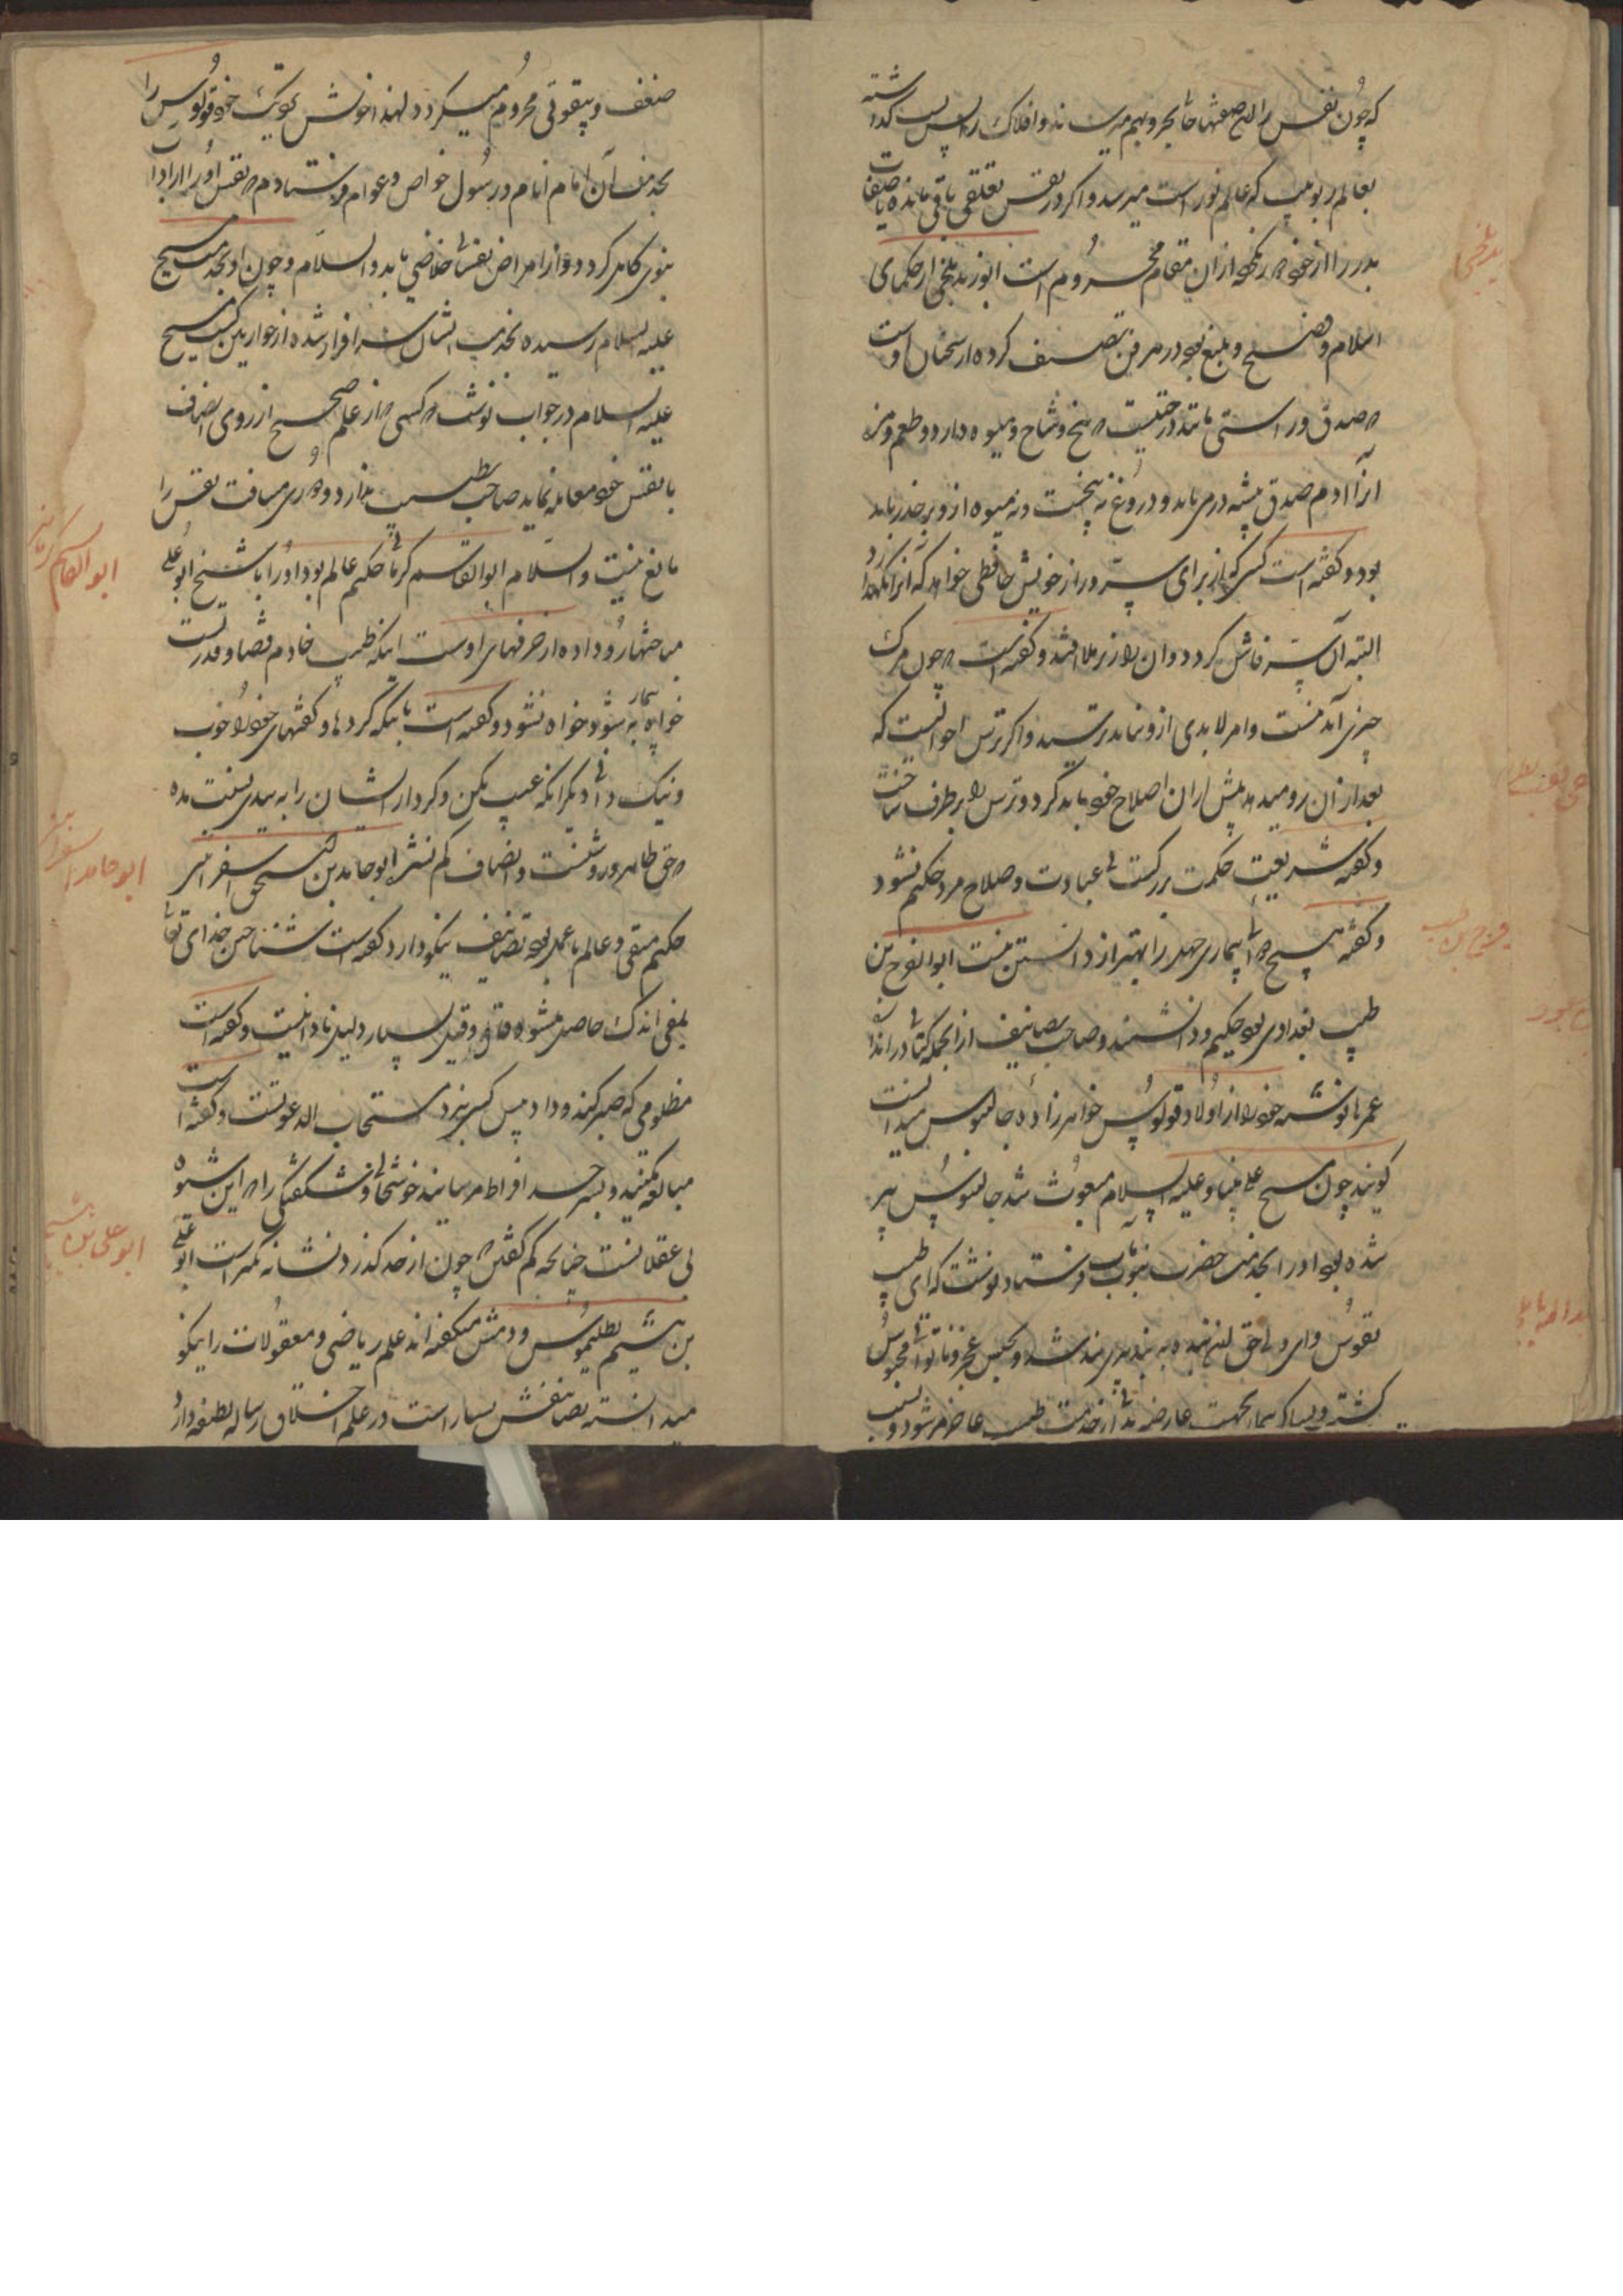 که چون نفس را این صفتها حاصل بحروبهم میرساند و افلاک را پس پس گذاشته
بعالم ربوبیت که عالم نور است میرسد و اگر در نفس تعلقی باقی مانده باصفات
بد را از خود ازان مقام محروم است ابوزید بلخی از حکمای
اسلام و فصیح و بلیغ بود در هر فن تصنیف کرده از سخنان اوست
که صدق و راستی مانند درختیست که بیخ و شاخ و میوه دارد و طعم و مزه
آنرا آدم صدق پیشه در می یابد و دروغ نه بیخست و نه میوه ازو بر حذر باید
بود و گفته است کسی که از برای سر و راز خویش حافظی خواهد که آنرا نگهدارد
البته آن سر فاش گردد و آن راز برملا افتد و گفته است که چون مرگ
چیزی آمدنیست و امر لابدی ازو نباید ترسید و اگر ترس احوالیست که
بعد ازان رو میدهد پیش ازان اصلاح خود باید کرد و ترس را برطرف ساخت
و گفته شریعت حکمت بزرگست بی عبادت و صلاح مرد حکیم نشود
و گفته هیچ بیماری جهل را بهتر از دانستن نیست ابوالفرج بن
طیب بغدادی بود حکیم و دانشمند و صاحب تصانیف ازانجمله کتابی در انداز
عمرها نوشته خود را از اولاد قولوپس خواهرزاده جالینوس میدانست
گویند چون مسیح علی نبینا و علیه السلام مبعوث شد جالینوس پیر
شده بود او را بخدمت حضرت نبوت مآب فرستاد و نوشت که ای طبیب
نفوس و ای ولی حق این بنده به پیری بند شد و بحبس عجز و ناتوانی محبوس
گشته و بسا که بیمار بجهت عارضه بدنی از خدمت طبیب عاجز میشود و بسبب
ضعف و بیقوتی محروم میگردد لهذا خویش نزدیک خود قولوپس را
بخدمت آن امام انام و رسول خواص و عوام فرستادم که نفس او را از آداب
نبوی کامل گردد و از امراض نفسانی خلاصی یابد والسلام و چون او بخدمت مسیح
علیه السلام رسیده بخدمت ایشان سرافراز شده از حواریین گشت مسیح
علیه السلام در جواب نوشت که کسی که از علم صحیح از روی انصاف
با نفس خود معامله نماید صاحب طبیب ندارد و دوری مسافت نفس را
مانع نیست والسلام ابوالقاسم کرمانی حکیم عالم بود او را با شیخ ابوعلی
مباحثها رو داده از حرفهای اوست اینکه طبیب خادم قضا و قدرست
خواه بیمار به شود خواه نشود و گفته است بآنکه کردها و گفتهای خود را خوب
و نیک دانی دیگرانکه عیب مکن و کردار ایشان را به بدی نسبت مده
که حق ظاهر و روشنست و انصاف کم نشر ابوحامد بن اسحق اسفراینی
حکیم متقی و عالم با عمل بود تصانیف نیکو دارد گفته است شناختن خدای تعالی
بمعنی اندک حاصل میشود و قال و قیل بسیار دلیل نادانیست و گفته است
مظلومی که صبر کند و داد پیش کس نبرد مستجاب الدعوتست و گفته است
مبالغه مکنید و بسرحد افراط مرسانید خوشحالی و شگفتگی را که این شیوه
بی عقلانست چنانچه کم گفتن که چون از حد گذرد نشانه تکبر است ابوعلی
بن هیثم بطلیموس دومش میگفته اند علم ریاضی و معقولات را نیکو
میدانسته تصانیفش بسیار است در علم اخلاق رساله لطیفه دارد
ابوالقاسم کرمانی
ابوحامد اسفراینی
ابوعلی بن هیثم